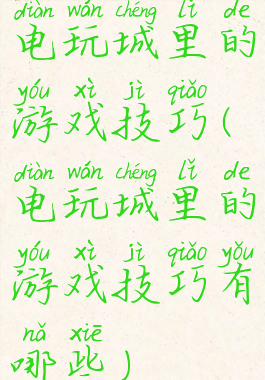 diàn wán chéng lǐ de
电玩城里的
yóu xì jì qiǎo
游戏技巧(
diàn wán chéng lǐ de
电玩城里的
yóu xì jì qiǎo yǒu
游戏技巧有
nǎ xiē
哪些)